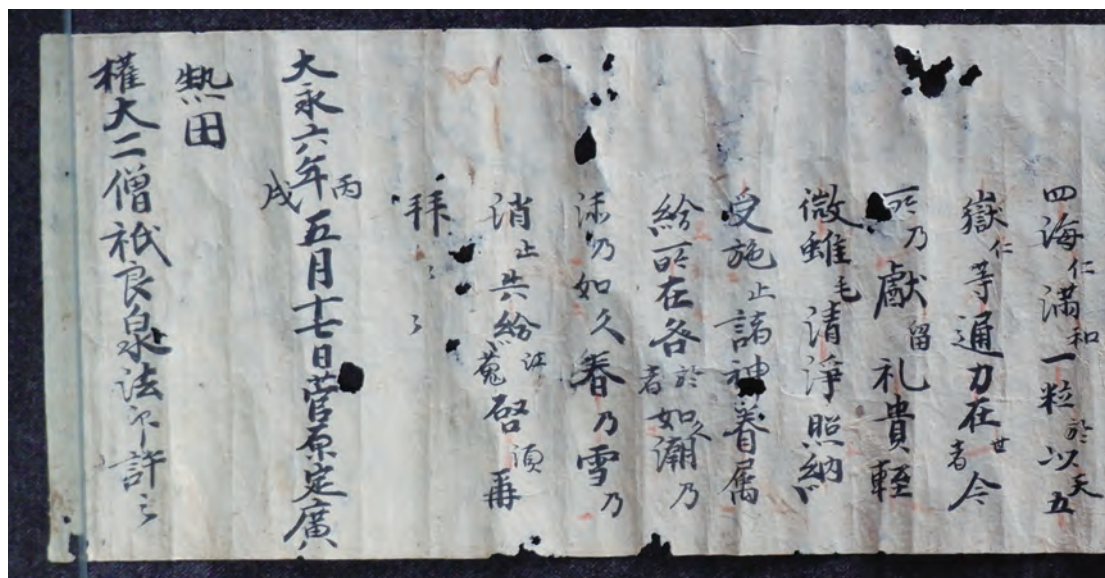 四海仁満和一粒於以天五
嶽仁等通力在世者今
所乃獻留礼貴軽
微雖毛清浄照納
受施止謁神眷属
給所在各於者如潮乃
如久春乃雪乃
消止共給啓須再
拝〻〻
大永六年丙戌五月十七日菅原定廣
熱田
権大二僧祇良泉法印許之